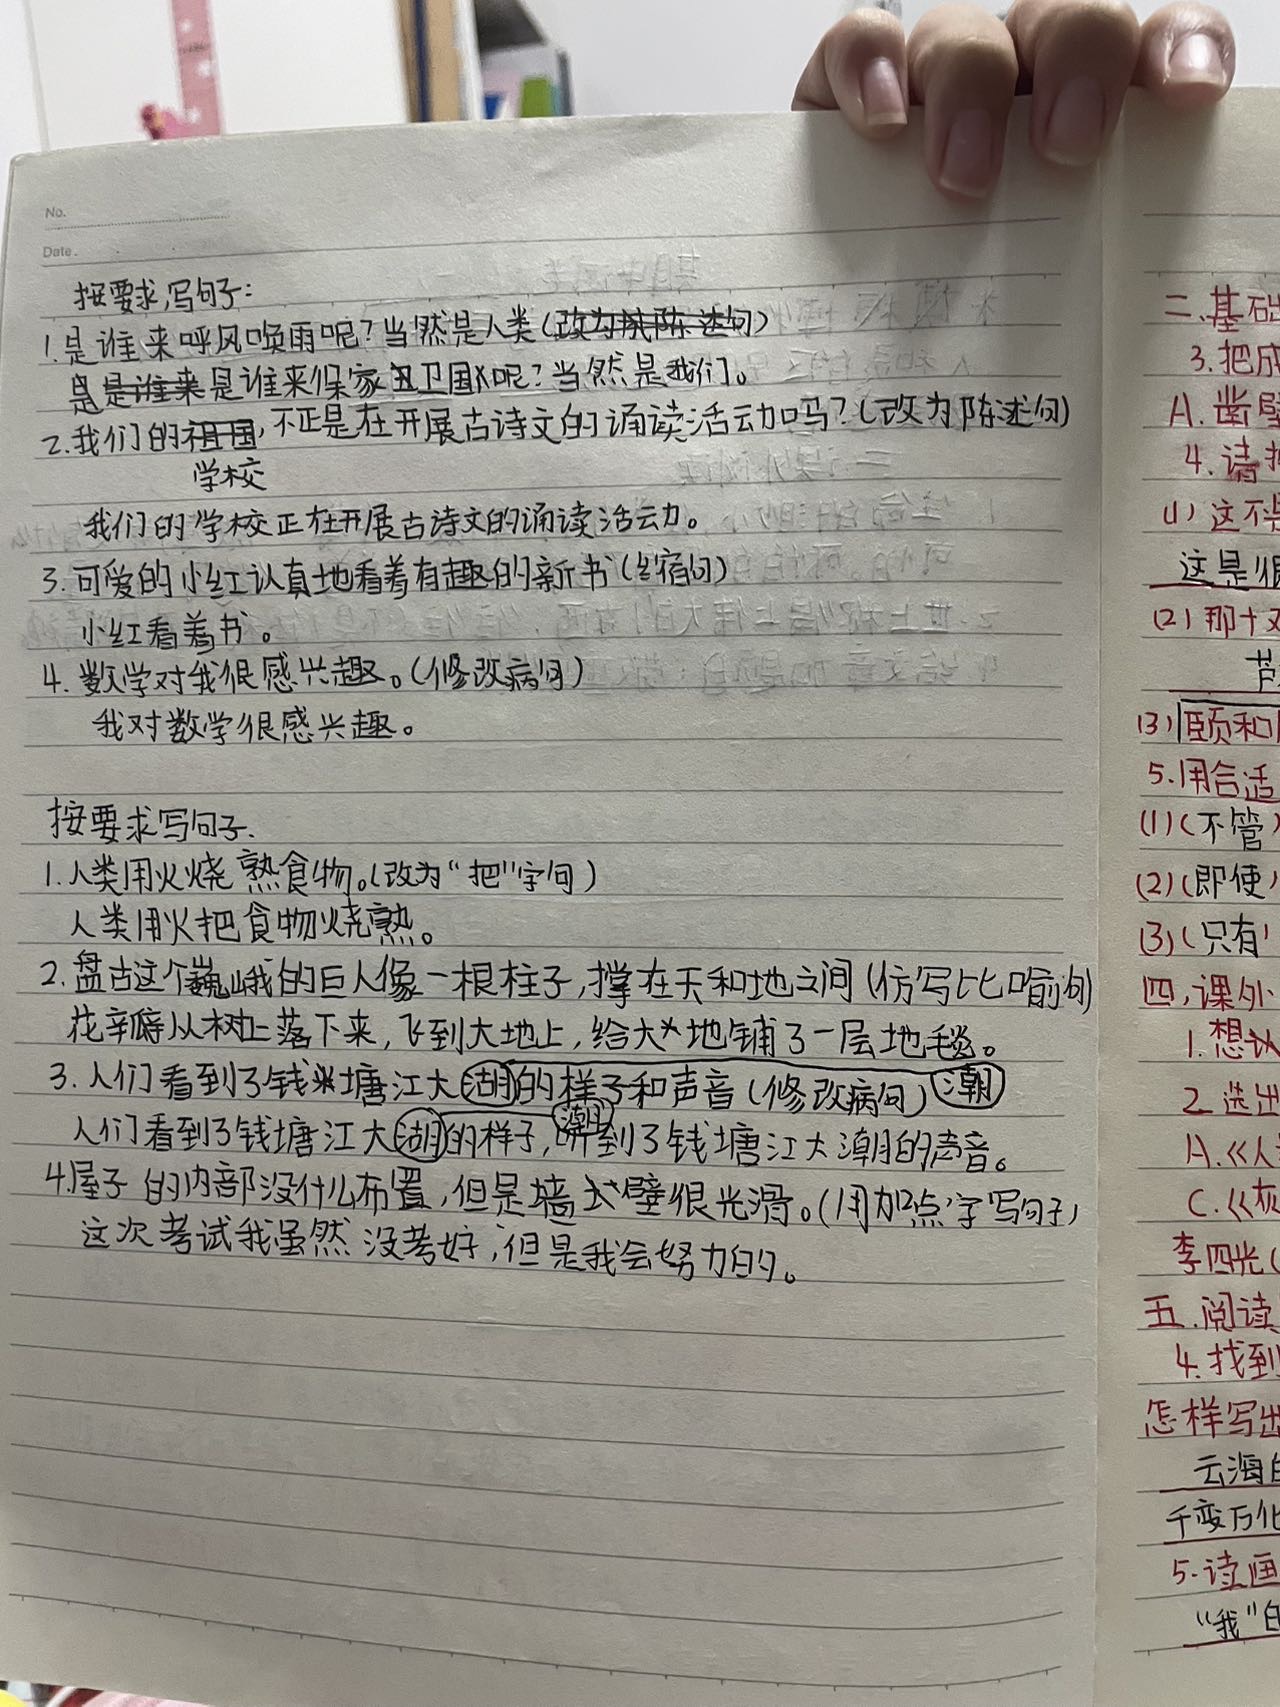 No.
Date.
按要求,写句子:
1.是谁来呼风唤雨呢?当然是人类(改为陈述句)
是是谁来是谁来保家卫国呢?当然是我们。
2.我们的祖国,不正是在开展古诗文的诵读活动吗?(改为陈述句)
学校
我们的学校正在开展古诗文的诵读活动。
3.可爱的小红认真地看着有趣的新书(缩句)
小红看着书。
4.数学对我很感兴趣。(修改病句)
我对数学很感兴趣。
按要求写句子.
1.人类用火烧熟食物。(改为“把”字句)
人类用火把食物烧熟。
2.盘古这个巍峨的巨人像一根柱子,撑在天和地之间(仿写比喻句)
花瓣从树上落下来,飞到大地上,给大地铺了一层地毯。
3.人们看到了钱塘江大湖的样子和声音(修改病句)潮
潮
人们看到了钱塘江大湖的样子,听到了钱塘江大潮的声音。
4.屋子的内部没什么布置,但是墙壁很光滑。(用加点字写句子)
这次考试我虽然没考好,但是我会努力的。
二.基础
3.把成
A.凿壁
4.请按
(1)这不是
这是很
(2)那十
(3)颐和
5.用合适
(1)(不管)
(2)(即使)
(3)(只有
四,课外
1.想
2.选出
A.《人
C.《灰
李四光(
五.阅读
4.找到
怎样写出
云海
千变万化
5.诗画
“我”的